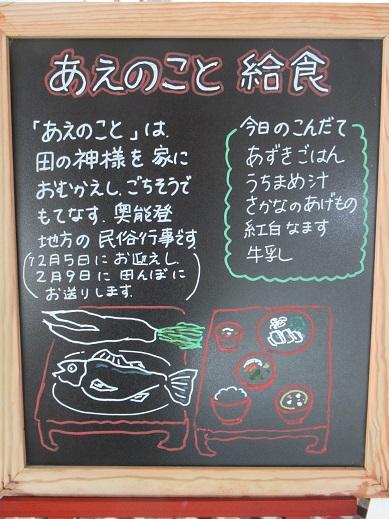 あえのこと 給食
「あえのこと」は、
田の神様を家に
おむかえし、ごちそうで
もてなす、奥能登
地方の民俗行事です
(12月5日にお迎えし、
2月9日に田んぼに
お送りします。)
今日のこんだて
あずきごはん
うちまめ汁
さかなのあげもの
紅白なます
牛乳し